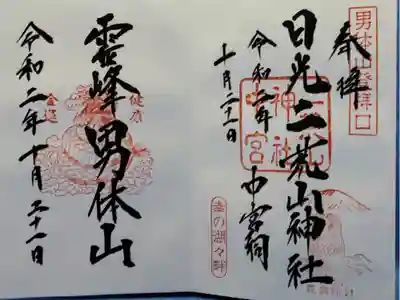 男体山登拝口
奉拝
日光二荒山神社
中宮祠
令和二年
十月二十一日
二荒山神社中宮祠
幸の湖々畔
霊峰男体山
健康
金運
令和二年十月二十一日